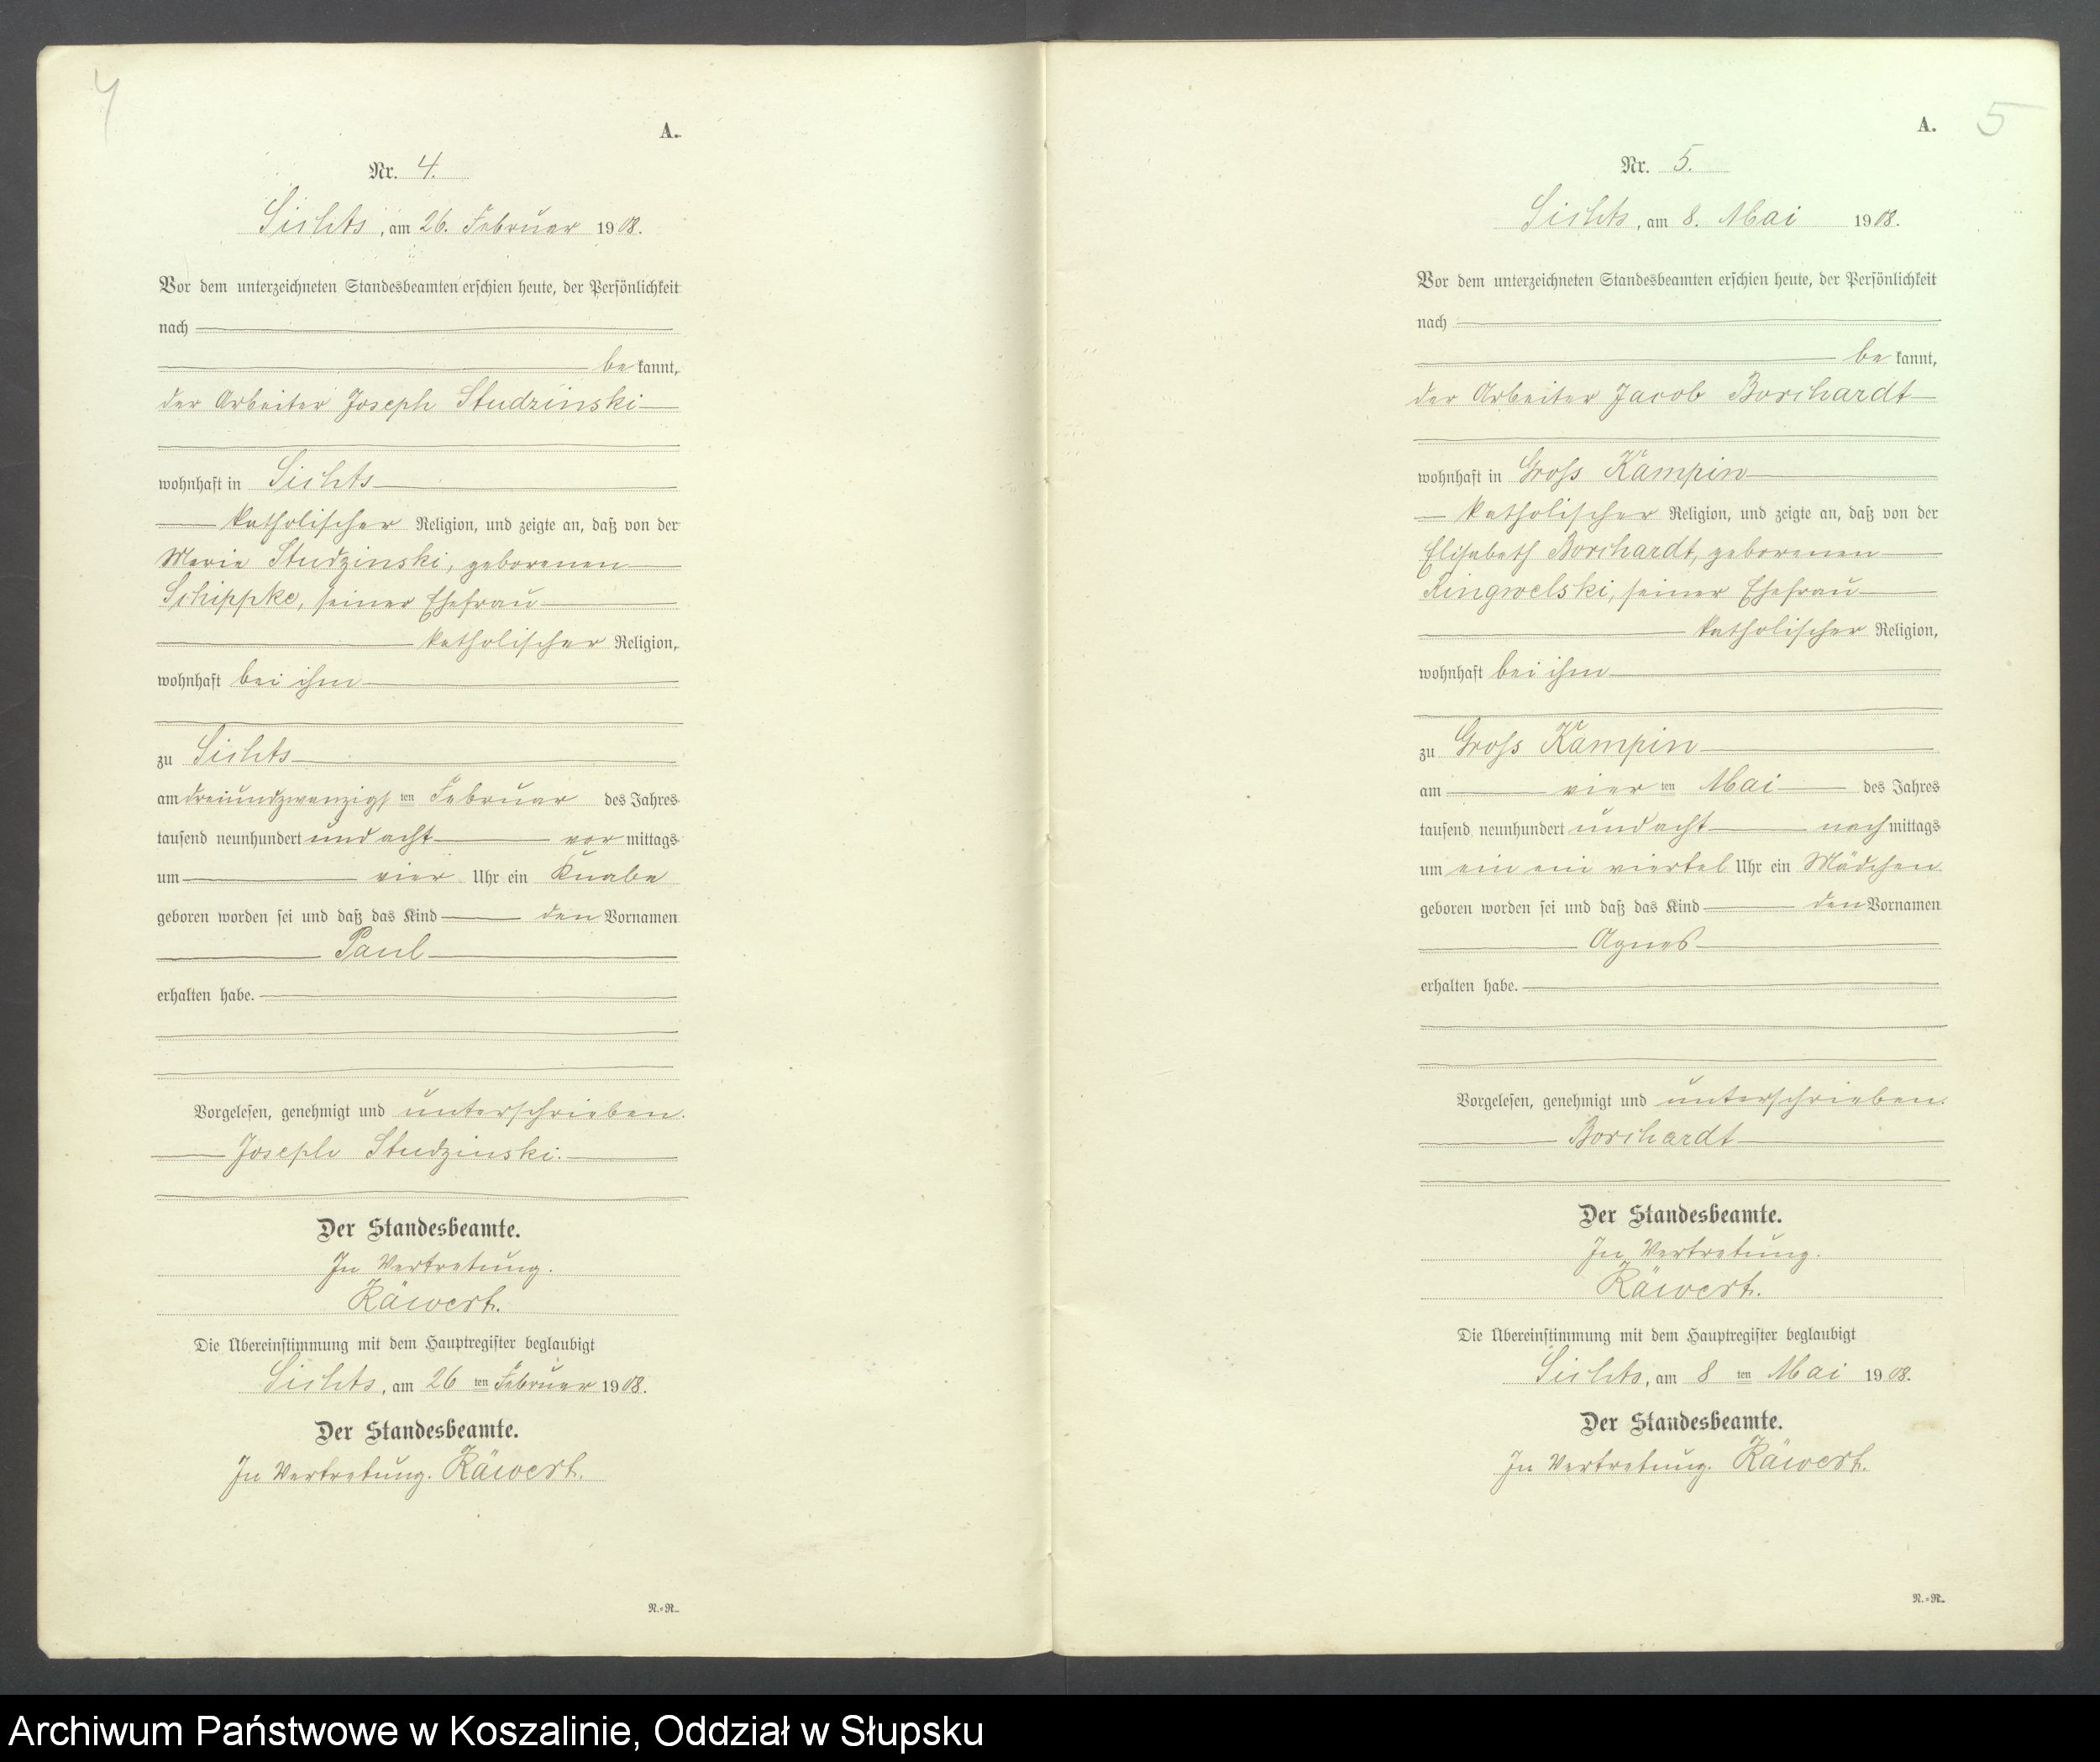 4
A.
Nr. 4.
Sichts, am 26. Februar 1908.
Vor dem unterzeichneten Standesbeamten erschien heute, der Persönlichkeit
nach
be kannt,
der Arbeiter Joseph Studzinski
wohnhaft in Sichts
katholischer Religion, und zeigte an, daß von der
Marie Studzinski, geborenen
Schippke, seiner Ehefrau
katholischer Religion,
wohnhaft bei ihm
zu Sichts
am dreiundzwanzigs ten Februar des Jahres
tausend neunhundert und acht vor mittags
um vier Uhr ein Knabe
geboren worden sei und daß das Kind den Vornamen
Paul
erhalten habe.
Vorgelesen, genehmigt und unterschrieben.
Joseph Studzinski.
Der Standesbeamte.
In Vertretung.
Räwert.
Die Übereinstimmung mit dem Hauptregister beglaubigt
Sichts, am 26 ten Februar 1908.
Der Standesbeamte.
In Vertretung. Räwert.
N.=R.
5
A.
Nr. 5.
Sichts, am 8. Mai 1908.
Vor dem unterzeichneten Standesbeamten erschien heute, der Persönlichkeit
nach
be kannt,
der Arbeiter Jacob Borchardt
wohnhaft in Gross Kampin
katholischer Religion, und zeigte an, daß von der
Elisabeth Borchardt, geborenen
Ringwelski, seiner Ehefrau
katholischer Religion,
wohnhaft bei ihm
zu Gross Kampin
am vier ten Mai des Jahres
tausend neunhundert und acht nach mittags
um ein ein viertel Uhr ein Mädchen
geboren worden sei und daß das Kind den Vornamen
Agnes
erhalten habe.
Vorgelesen, genehmigt und unterschrieben.
Borchardt
Der Standesbeamte.
In Vertretung.
Räwert.
Die Übereinstimmung mit dem Hauptregister beglaubigt
Sichts, am 8 ten Mai 1908.
Der Standesbeamte.
In Vertretung. Räwert.
N.=R.
Archiwum Państwowe w Koszalinie, Oddział w Słupsku